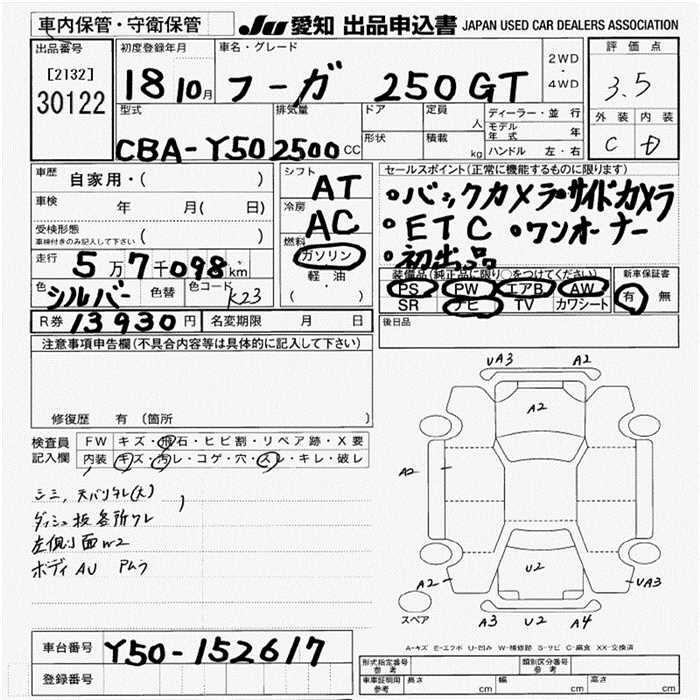 車内保管・守衛保管
JU 愛知 出品申込書 JAPAN USED CAR DEALERS ASSOCIATION
出品番号
[2132]
30122
初度登録年月
18 10月
車名・グレード
フーガ 250GT
2WD
・
4WD
評価点
3.5
外装 内装
C D
型式
CBA-Y50
排気量
2500cc
ドア
形状
定員
人
積載
kg
ディーラー・並行
モデル年式 年
ハンドル 左・右
車歴 自家用・( )
車検 年 月( 日)
受検形態
車検付きのみ記入して下さい ( )
走行 5万7千098km
色 シルバー 色替 色コード K23
R券 13930円 名変期限 月 日
シフト
AT
冷房
AC
燃料
ガソリン
軽・油
( )
セールスポイント(正常に機能するものに限ります)
・バックカメラ・サイドカメラ
・ETC ・ワンオーナー
・初出品
装備品(純正品に限り○をつけてください)
PS PW エアB AW
SR ナビ TV カワシート
新車保証書
有 無
後日品
注意事項申告欄(不具合内容等は具体的に記入して下さい)
修復歴 有 (箇所 )
検査員記入欄
FW キズ・飛石・ヒビ割・リペア跡・X要
内装 キズ・汚レ・コゲ・穴・スレ・キレ・破レ
シミ、天バリタレ(大)
ダッシュ板各所ワレ
左側面W2
ボディAU Pムラ
UA3 A2
A2
A2
U2
A2 UA3
スペア
A3 U2 A4
A-キズ E-エクボ U-凹み W-補修跡 S-サビ C-腐食 XX-交換済
車台番号 Y50-152617
登録番号
形式指定番号 参考
類別区分番号 参考
車庫証明用 参考 長さ cm 幅 cm 高さ cm